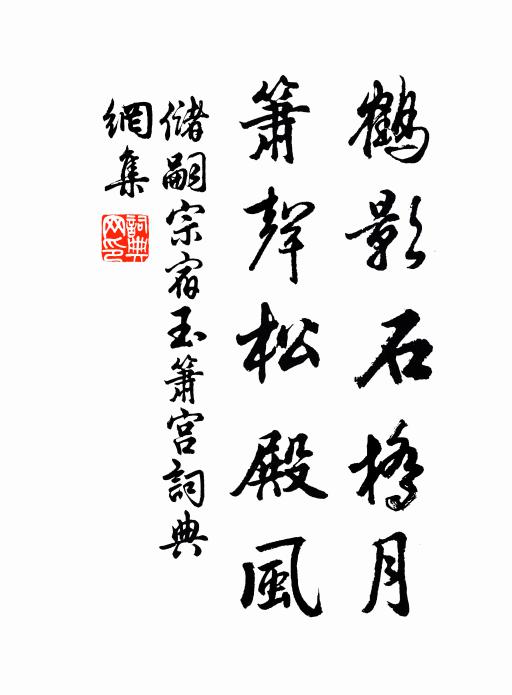 鶴影石橋月
簫聲松殿風
儲嗣宗宿玉簫宮詞典
網集
詞典
网印